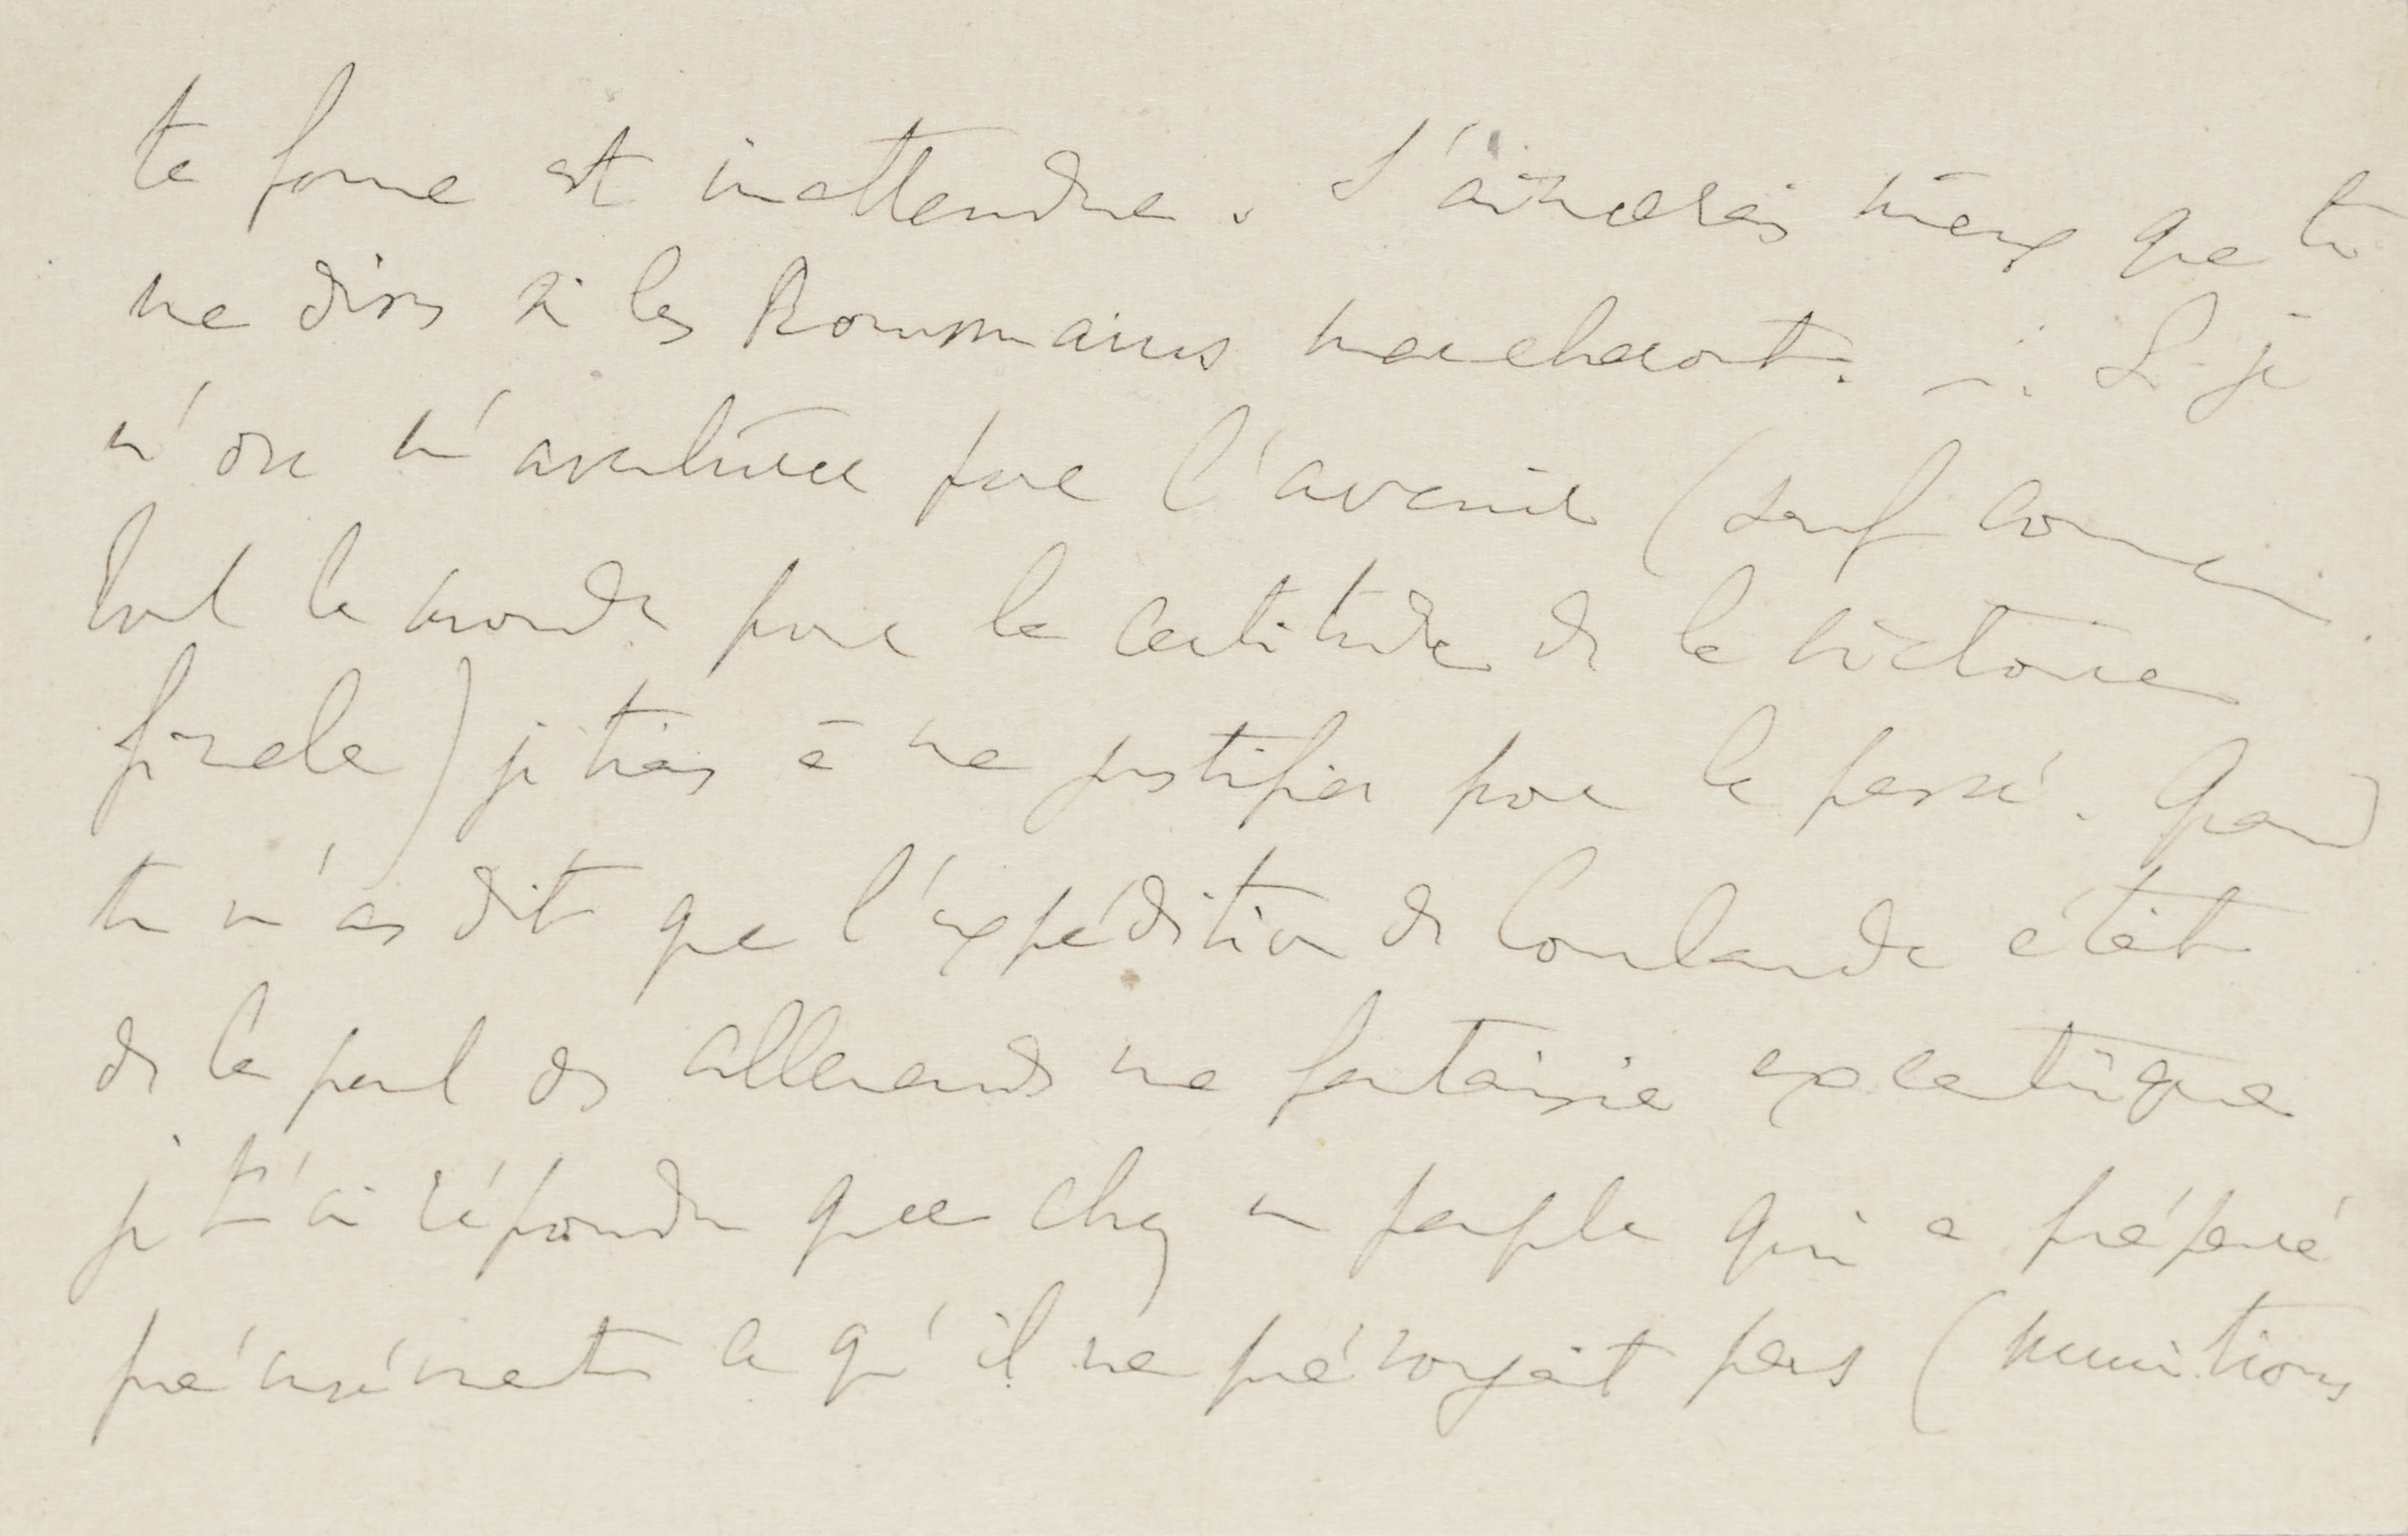 te forme est inattendue. J'aimerais mieux que tu
me dises si les Roumains marcheront. Si je
n'ose m'aventurer pour l'avenir (sauf comme
tout le monde pour la certitude de la victoire
finale) je tiens à me justifier pour le passé. Quand
tu m'as dit que l'expédition de Courlande était
de la part des allemands une fantaisie excentrique
je t'ai répondu que chez un peuple qui a préparé
précisément ce qu'il ne prévoyait pas (munitions